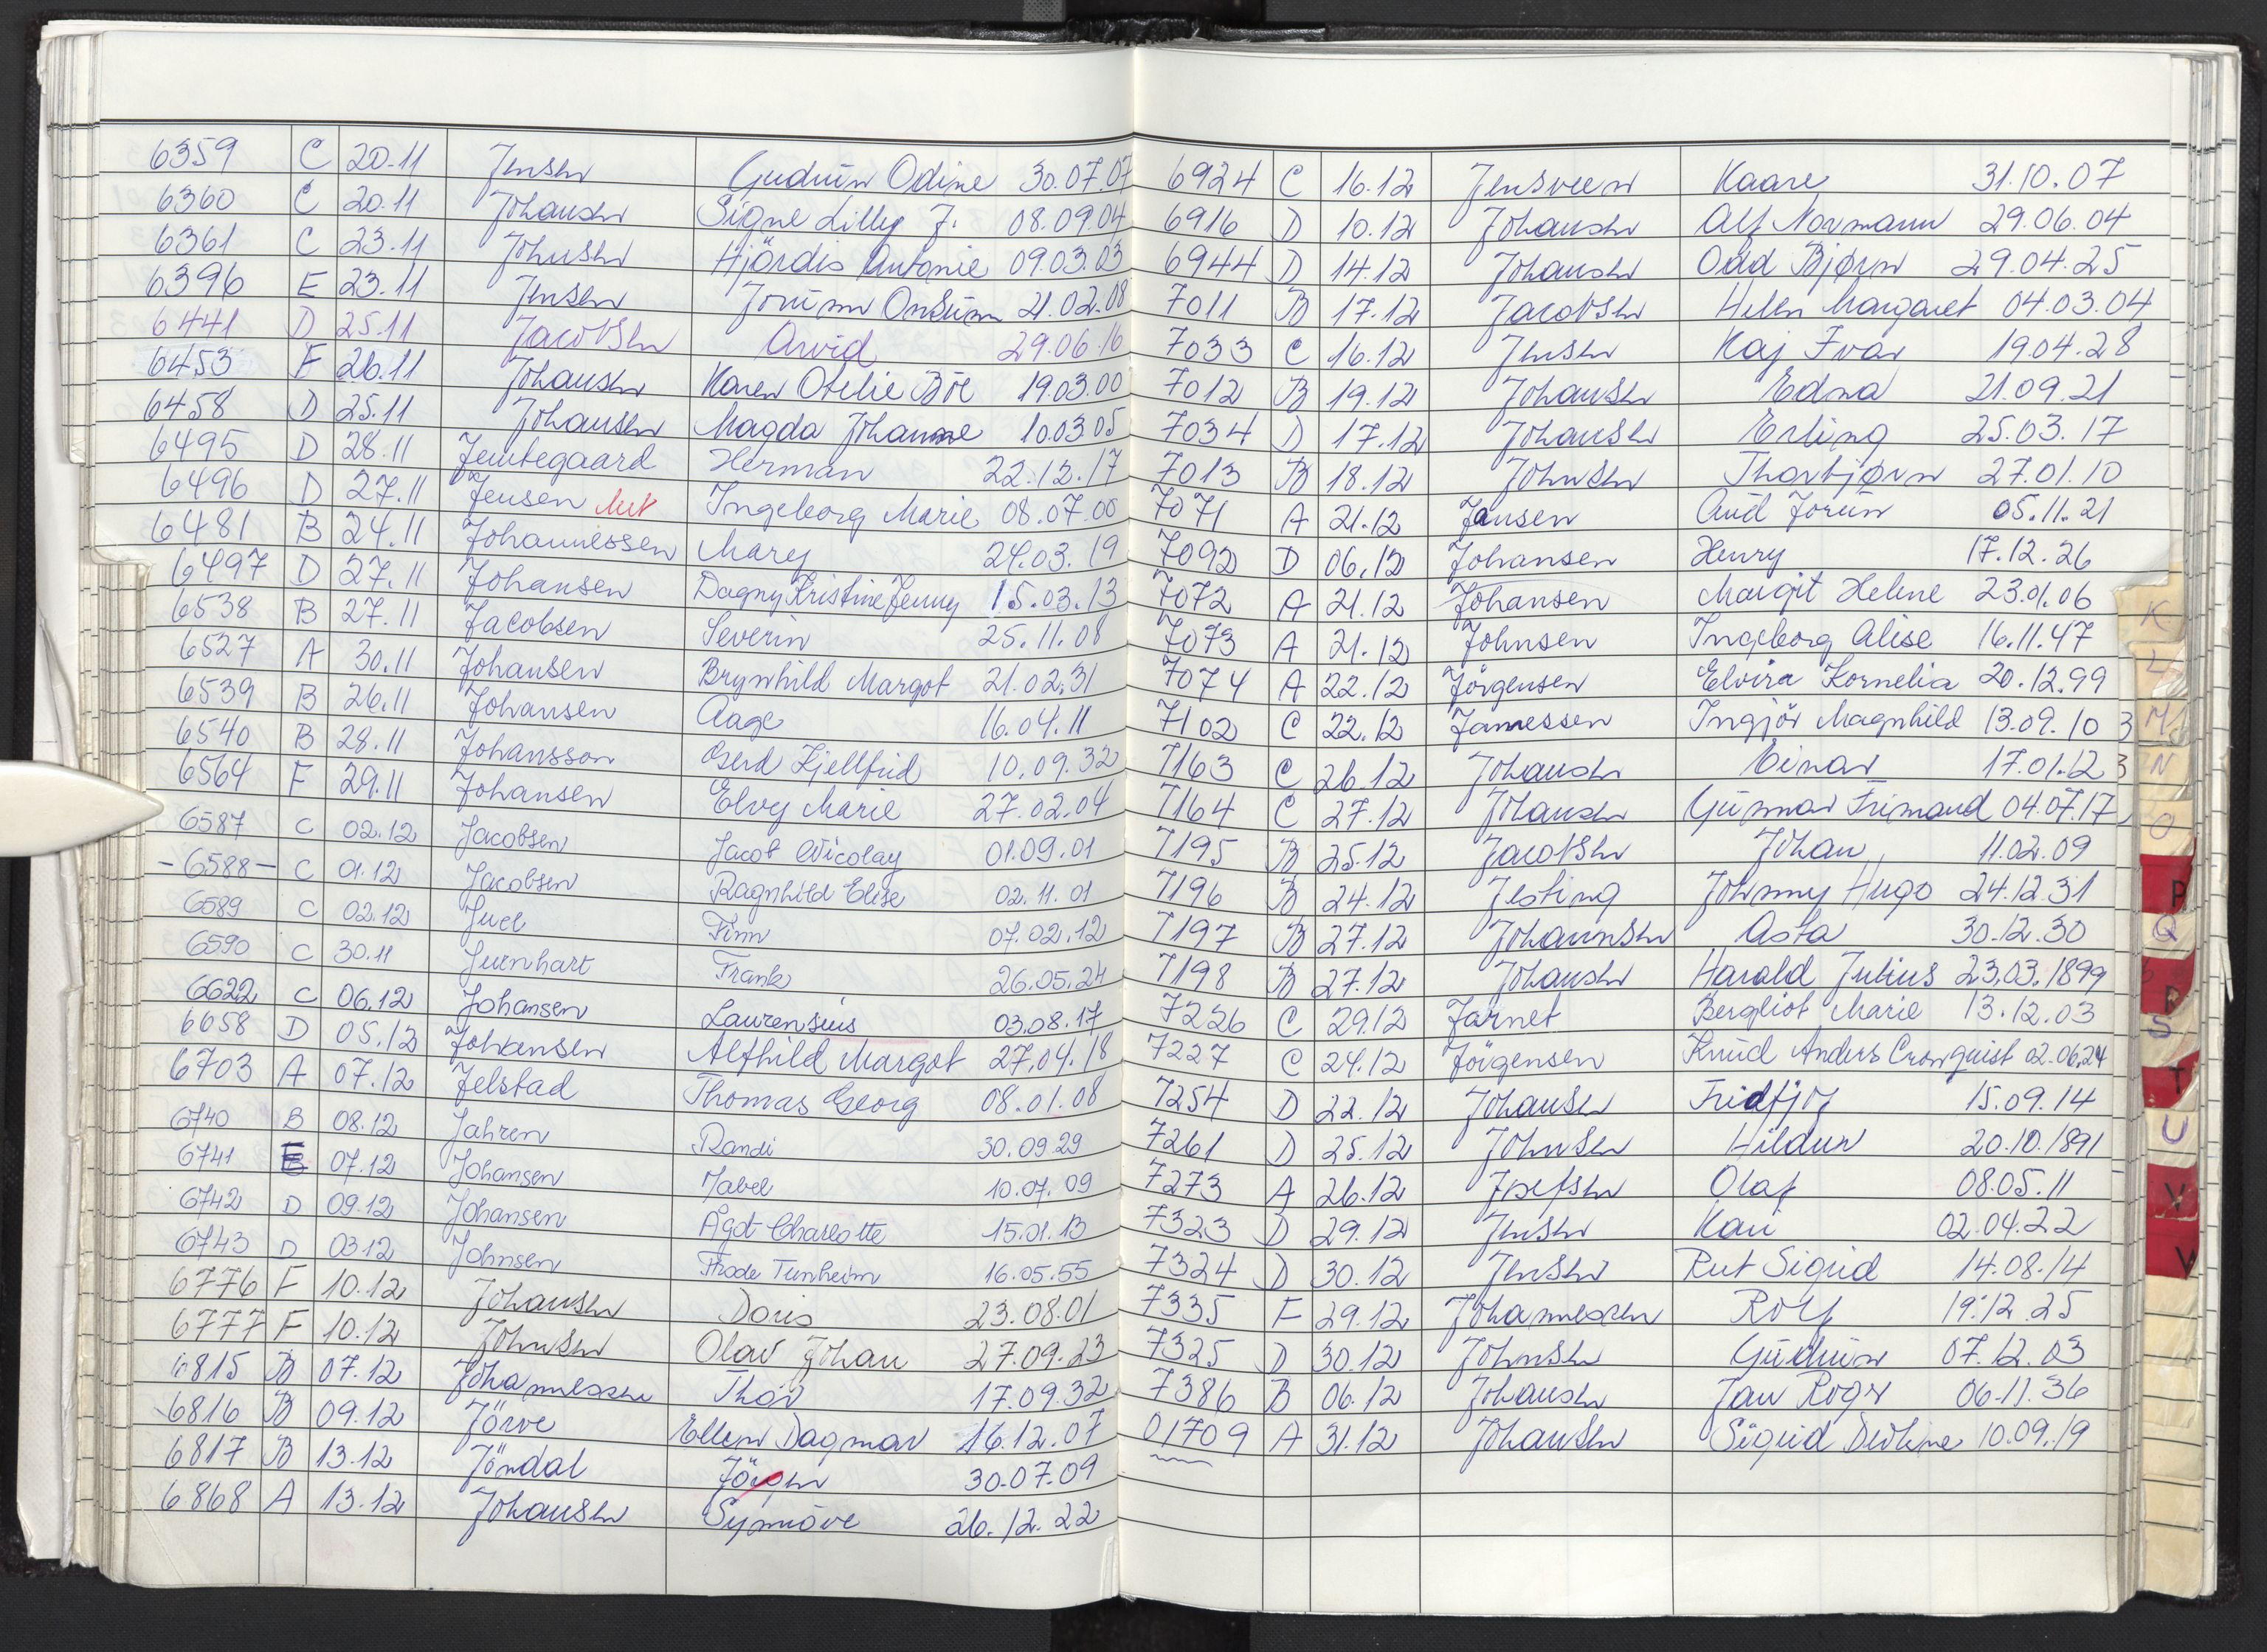 6359 C 20.11 Jensen Gudrun Odine 30.07.07
6360 C 20.11 Johansen Signe Lilly J. 08.09.04
6361 C 23.11 Johnsen Hjördis Antonie 09.03.03
6396 E 23.11 Jensen Jorunn Onsum 21.02.08
6441 D 25.11 Jacobsen Arvid 29.06.16
6453 F 26.11 Johansen Karen Otelie Böe 19.03.00
6458 D 25.11 Johansen Magda Johanne 10.03.05
6495 D 28.11 Jemtegaard Herman 22.12.17
6496 D 27.11 Jensen Ingeborg Marie 08.07.00
6481 B 24.11 Johannessen Mary 24.03.19
6497 D 27.11 Johansen Dagny Kristine Jenny 15.03.13
6538 B 27.11 Jacobsen Severin 25.11.08
6527 A 30.11 Johansen Brynhild Margot 21.02.31
6539 B 26.11 Johansen Aage 16.04.11
6540 B 28.11 Johansson Gerd Kjellfrid 10.09.32
6564 F 29.11 Johansen Elvy Marie 27.02.04
6587 C 02.12 Jacobsen Jacob Nicolay 01.09.01
-6588- C 01.12 Jacobsen Ragnhild Elise 02.11.01
6589 C 02.12 Juel Finn 07.02.12
6590 C 30.11 Juenhart Frank 26.05.24
6622 C 06.12 Johansen Laurensius 03.08.17
6658 D 05.12 Johansen Alfhild Margot 27.04.18
6703 A 07.12 Jelstad Thomas Georg 08.01.08
6740 B 08.12 Jahren Randi 30.09.29
6741 E 07.12 Johansen Jabel 10.07.09
6742 D 09.12 Johansen Ågot Charlotte 15.01.13
6743 D 03.12 Johnsen Frode Tunheim 16.05.55
6776 F 10.12 Johansen Doris 23.08.01
6777 F 10.12 Johnsen Olav Johan 27.09.23
6815 B 07.12 Johannessen Thor 17.09.32
6816 B 09.12 Jörve Ellen Dagmar 16.12.07
6817 B 13.12 Jöndal Jörgen 30.07.09
6868 A 13.12 Johansen Synnöve 26.12.22
6924 C 16.12 Jensveen Kaare 31.10.07
6916 D 10.12 Johansen Alf Normann 29.06.04
6944 D 14.12 Johansen Odd Bjørn 29.04.25
7011 B 17.12 Jacobsen Helen Margaret 04.03.04
7033 C 16.12 Jensen Kaj Ivar 19.04.28
7012 B 19.12 Johansen Edna 21.09.21
7034 D 17.12 Johansen Erling 25.03.17
7013 B 18.12 Johnsen Thorbjørn 27.01.10
7071 A 21.12 Jansen Aud Jorun 05.11.21
7092 D 06.12 Johansen Henry 17.12.26
7072 A 21.12 Johansen Margit Helene 23.01.06
7073 A 21.12 Johnsen Ingeborg Alise 16.11.47
7074 A 22.12 Jörgensen Elvira Kornelia 20.12.99
7102 C 22.12 Jamessen Ingjör Magnhild 13.09.10 3
7163 C 26.12 Johansen Einar 17.01.12 3
7164 C 27.12 Johansen Gunnar Frimand 04.07.17
7195 B 25.12 Jacobsen Johan 11.02.09
7196 B 24.12 Jesting Johnny Hugo 24.12.31
7197 B 27.12 Johannsen Asta 30.12.30
7198 B 27.12 Johansen Harald Julius 23.03.1899
7226 C 29.12 Jarnet Bergliot Marie 13.12.03
7227 C 24.12 Jörgensen Knud Anders Cronquist 02.06.24
7254 D 22.12 Johansen Fridtjof 15.09.14
7261 D 25.12 Johnsen Hildur 20.10.1891
7273 A 26.12 Josefsen Olaf 08.05.11
7323 D 29.12 Jensen Kari 02.04.22
7324 D 30.12 Jensen Rut Sigrid 14.08.14
7335 F 29.12 Johannessen Rolf 19.12.25
7325 D 30.12 Johnsen Gudrun 07.12.03
7386 B 06.12 Johansen Jan Roger 06.11.36
01709 A 31.12 Johansen Sigrid 10.09.19
K
L
M
N
O
P
Q
R
S
T
U
V